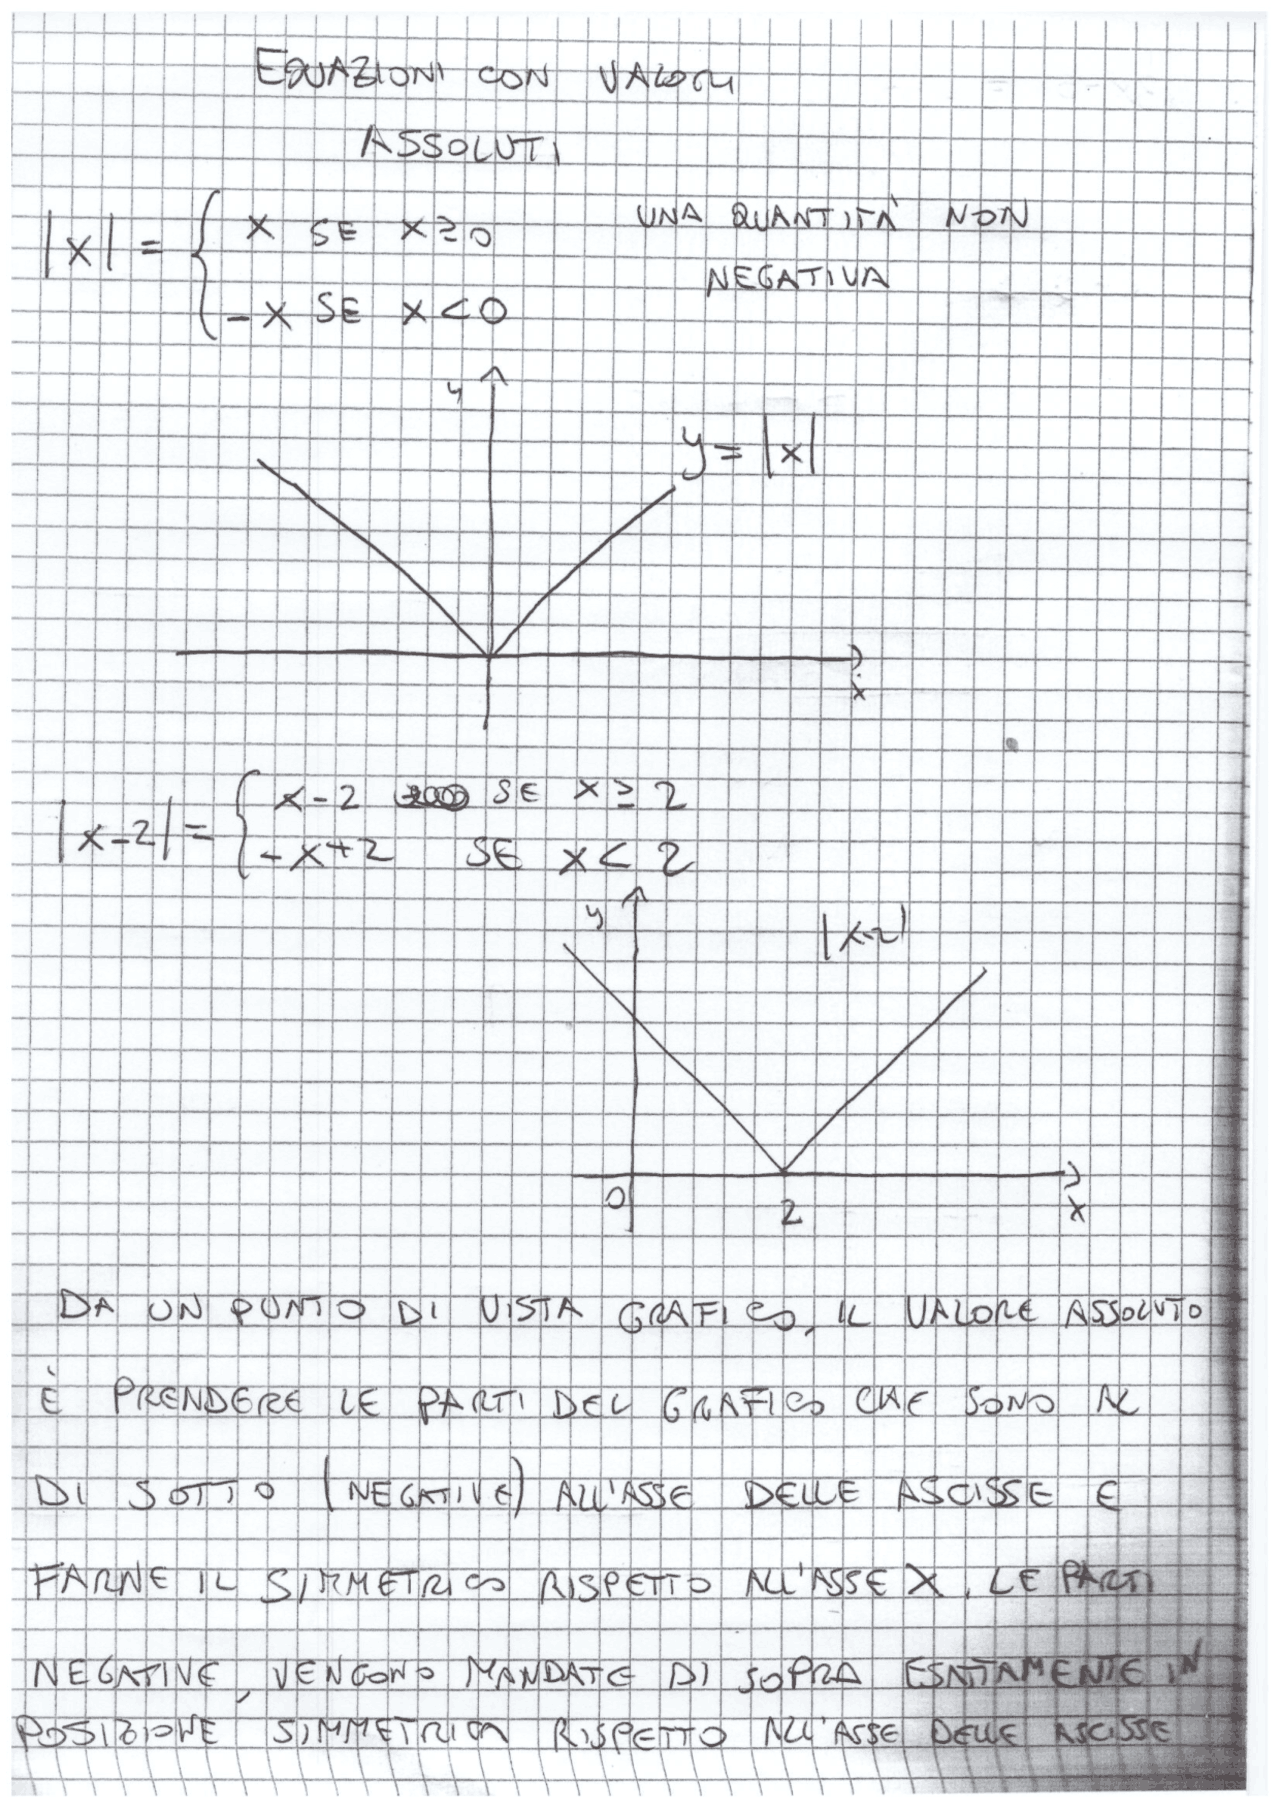 EQUAZIONI CON VALORI
ASSOLUTI
|x| = { x SE x ≥ 0
-x SE x < 0
UNA QUANTITÀ NON
NEGATIVA
y
y = |x|
x
|x-2| = { x-2 SE x ≥ 2
-x+2 SE x < 2
y
|x-2|
0
2
x
DA UN PUNTO DI VISTA GRAFICO, IL VALORE ASSOLUTO
È PRENDERE LE PARTI DEL GRAFICO CHE SONO AL
DI SOTTO (NEGATIVE) ALL'ASSE DELLE ASCISSE E
FARNE IL SIMMETRICO RISPETTO ALL'ASSE X. LE PARTI
NEGATIVE, VENGONO MANDATE DI SOPRA ESATTAMENTE IN
POSIZIONE SIMMETRICA RISPETTO ALL'ASSE DELLE ASCISSE